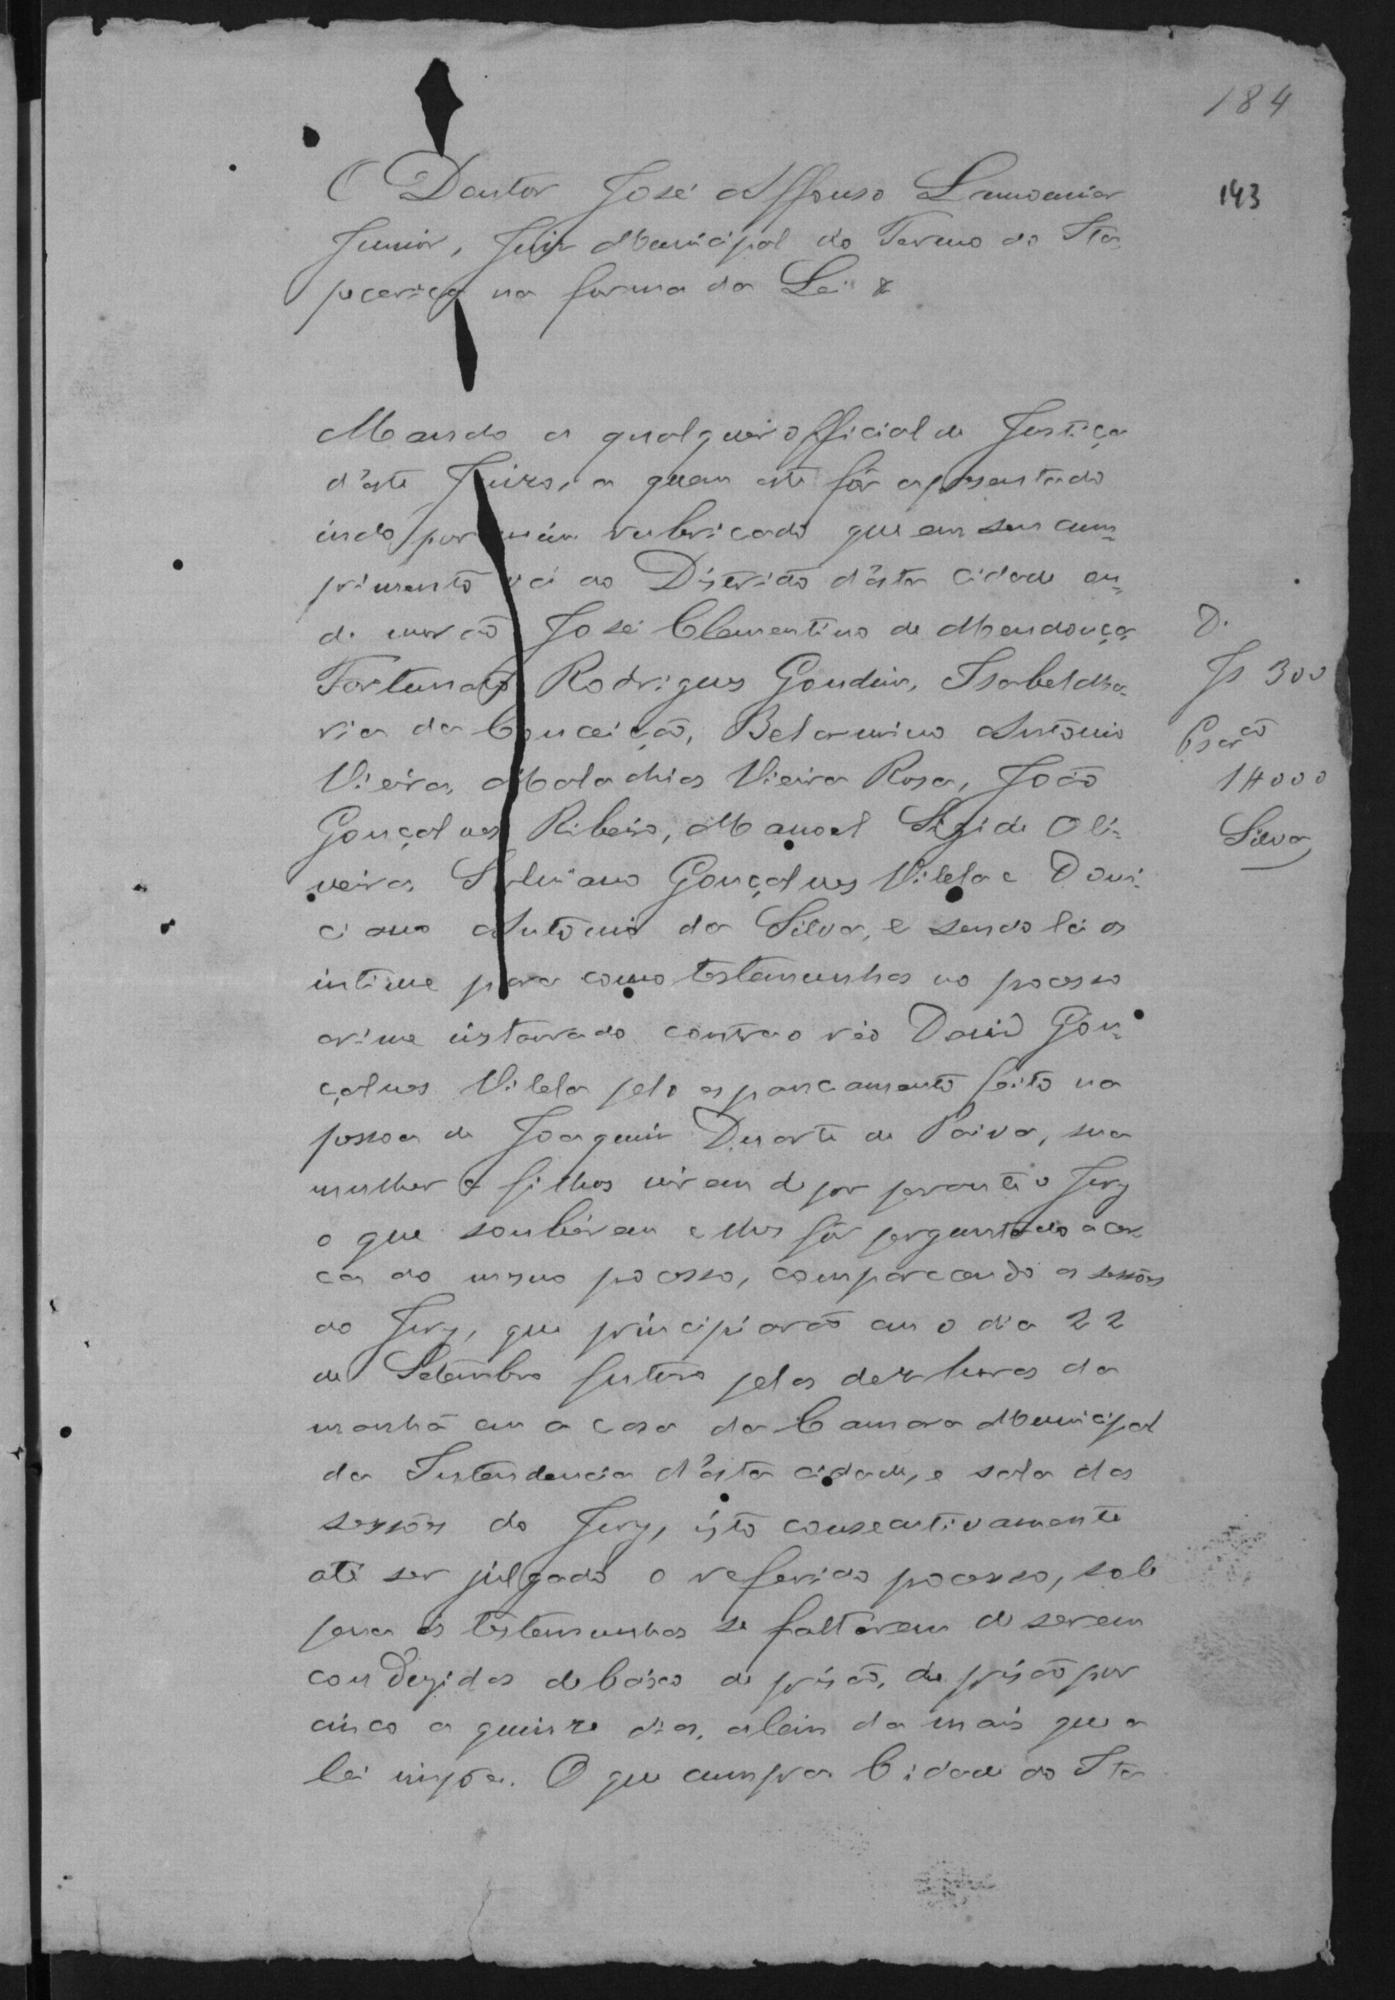 184
143
O Doutor José Affonso Lamounier
Junior, Juiz Municipal do Termo de Ita
pecerica na forma da Lei &
Mando a qualquer official de Justiça
d'este Juizo, a quem este fôr apresentado
indo por mim rubricado que em seu cum-
primento vá ao Districto d'esta cidade on-
de morão José Clementino de Mendonça
Fortunato Rodrigues Gondim, Isabel Ma-
ria da Conceição, Belarmino Antonio
Vieira, Malachias Vieira Rosa, João
Gonçalves Ribeiro, Manoel de Oli-
veira, Gonçalves Vilela e Domi-
ciano Antonio da Silva, e sendo lá os
intime para como testemunhas no pocesso
crime instaurado contra o réo David Gon-
çalves Vilela pelo espancamento feito na
pessoa de Joaquim Duarte de Paiva, sua
mulher e filhos virem depor perante o Jury
o que soubérem e lhes fôr perguntado acer
ca do mesmo pocesso, comparecendo as sessões
do Jury, que principiarão em o dia 22
de Setembro futuro pelas dez horas da
manhã em a casa da Camara Municipal
da Intendencia d'esta cidade, e sala das
sessões do Jury, isto consecutivamente
até ser julgado o referido pocesso, sob
pena ás testemunhas se faltárem de serem
conduzidas debaixo de prisão, de prisão por
cinco a quinze dias, alem da mais que a
lei impõe. O que cumpra Cidade de Ita
D.
Js 300
1#000
Silva